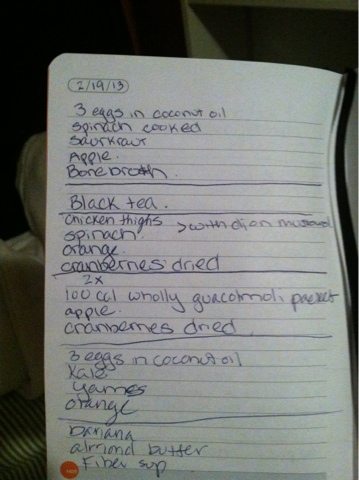 2/19/13
3 eggs in coconut oil
spinach cooked
saurkraut
Apple.
Bone broth
Black tea.
chicken thighs
spinach. > with dijon mustard
orange.
cranberries dried
2x
100 cal wholly guacolmoli packet
apple.
cranberries dried
3 eggs in coconut oil
Kale
yames
orange
banana
almond butter
Fiber sup